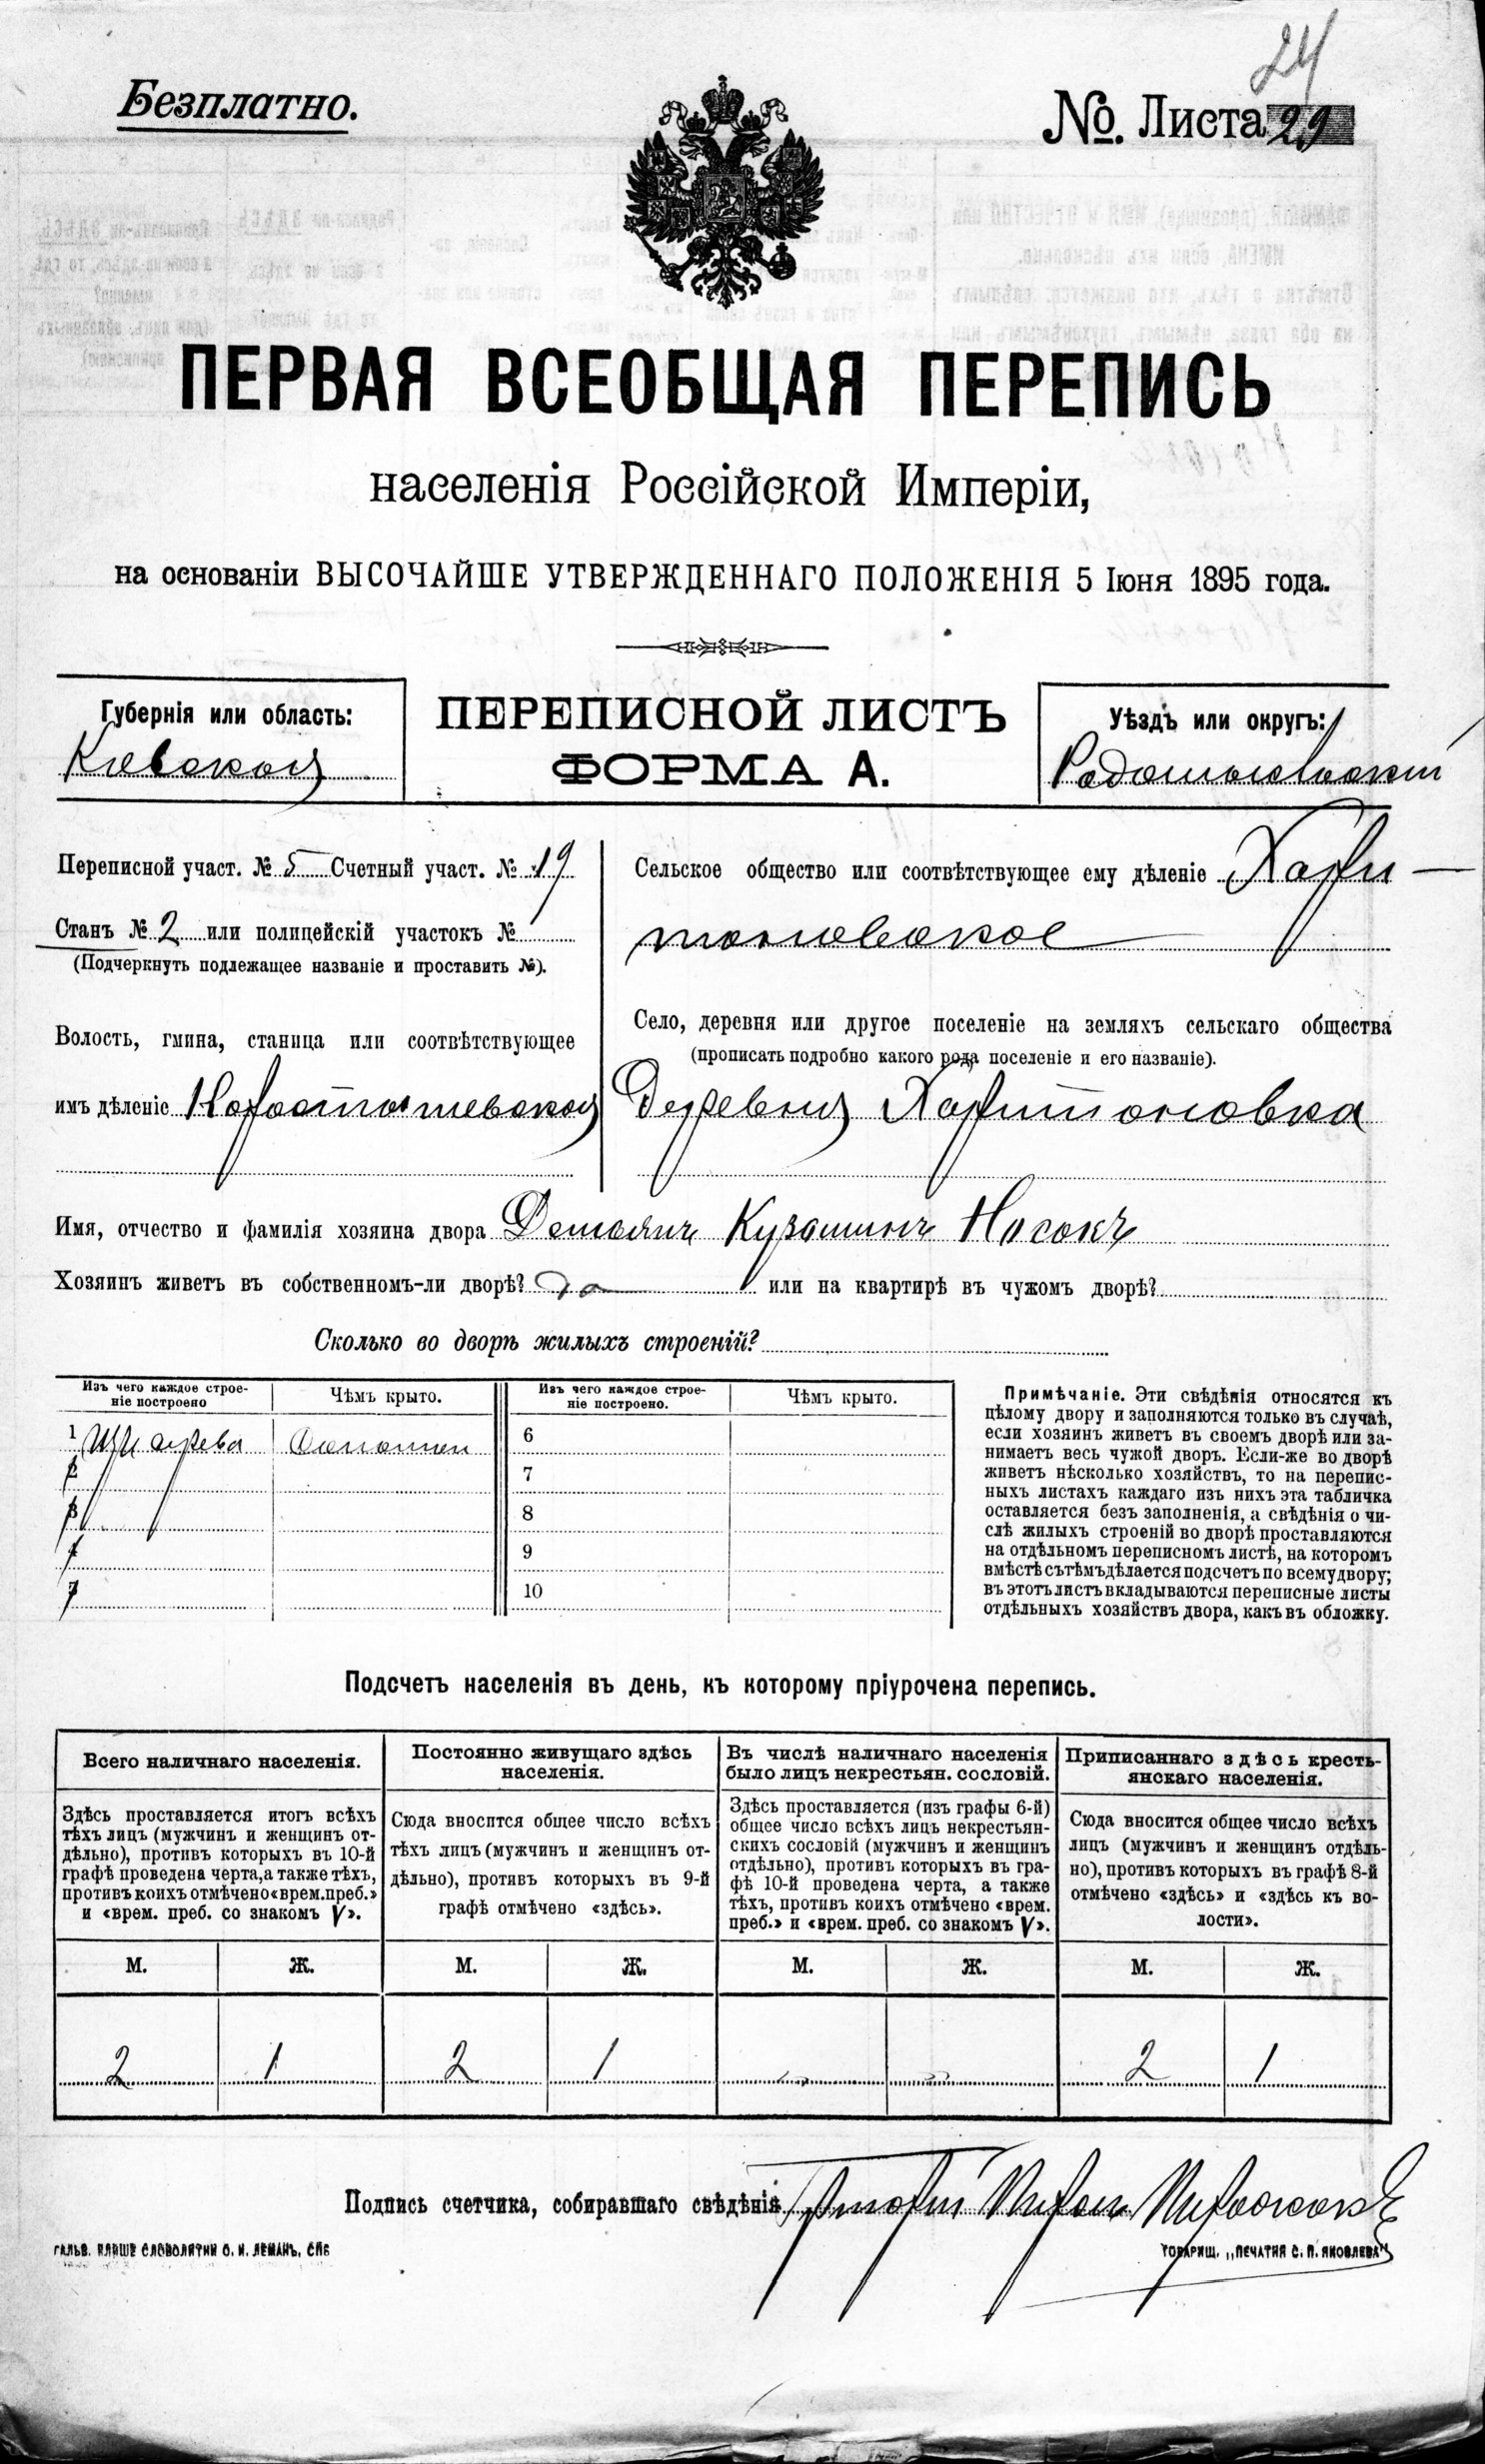 24
Безплатно.
№. Листа 29
ПЕРВАЯ ВСЕОБЩАЯ ПЕРЕПИСЬ
населенія Россійской Имперіи,
на основаніи ВЫСОЧАЙШЕ УТВЕРЖДЕННАГО ПОЛОЖЕНІЯ 5 Іюня 1895 года.
Губернія или область:
Кіевская
ПЕРЕПИСНОЙ ЛИСТЪ
ФОРМА А.
Уѣздъ или округъ:
Радомысльскій
Переписной участ. № 5 Счетный участ. № 19
Станъ № 2 или полицейскій участокъ №
(Подчеркнуть подлежащее названіе и проставить №).
Волость, гмина, станица или соотвѣтствующее
имъ дѣленіе Коростышевская
Сельское общество или соотвѣтствующее ему дѣленіе Хари-
тоновское
Село, деревня или другое поселеніе на земляхъ сельскаго общества
(прописать подробно какого рода поселеніе и его названіе).
Деревня Харитоновка
Имя, отчество и фамилія хозяина двора Демьянъ Кузьминъ Носокъ
Хозяинъ живетъ въ собственномъ-ли дворѣ? да или на квартирѣ въ чужомъ дворѣ?
Сколько во дворѣ жилыхъ строеній?
Изъ чего каждое строе-
ніе построено
Чѣмъ крыто.
Изъ чего каждое строе-
ніе построено.
Чѣмъ крыто.
1 Изъ дерева Соломой
2
3
4
5
6
7
8
9
10
Примѣчаніе. Эти свѣдѣнія относятся къ
цѣлому двору и заполняются только въ случаѣ,
если хозяинъ живетъ въ своемъ дворѣ или за-
нимаетъ весь чужой дворъ. Если-же во дворѣ
живетъ нѣсколько хозяйствъ, то на перепис-
ныхъ листахъ каждаго изъ нихъ эта табличка
оставляется безъ заполненія, а свѣдѣнія о чи-
слѣ жилыхъ строеній во дворѣ проставляются
на отдѣльномъ переписномъ листѣ, на которомъ
вмѣстѣ съ тѣмъ дѣлается подсчетъ по всему двору;
въ этотъ листъ вкладываются переписные листы
отдѣльныхъ хозяйствъ двора, какъ въ обложку.
Подсчетъ населенія въ день, къ которому пріурочена перепись.
Всего наличнаго населенія.
Здѣсь проставляется итогъ всѣхъ
тѣхъ лицъ (мужчинъ и женщинъ от-
дѣльно), противъ которыхъ въ 10-й
графѣ проведена черта, а также тѣхъ,
противъ коихъ отмѣчено «врем. преб.»
и «врем. преб. со знакомъ V».
М. Ж.
2 1
Постоянно живущаго здѣсь
населенія.
Сюда вносится общее число всѣхъ
тѣхъ лицъ (мужчинъ и женщинъ от-
дѣльно), противъ которыхъ въ 9-й
графѣ отмѣчено «здѣсь».
М. Ж.
2 1
Въ числѣ наличнаго населенія
было лицъ некрестьян. сословій.
Здѣсь проставляется (изъ графы 6-й)
общее число всѣхъ лицъ некрестьян-
скихъ сословій (мужчинъ и женщинъ
отдѣльно), противъ которыхъ въ гра-
фѣ 10-й проведена черта, а также
тѣхъ, противъ коихъ отмѣчено «врем.
преб.» и «врем. преб. со знакомъ V».
М. Ж.
Приписаннаго здѣсь кресть-
янскаго населенія.
Сюда вносится общее число всѣхъ
лицъ (мужчинъ и женщинъ отдѣль-
но), противъ которыхъ въ графѣ 8-й
отмѣчено «здѣсь» и «здѣсь къ во-
лости».
М. Ж.
2 1
Подпись счетчика, собиравшаго свѣдѣнія
ГАЛЬВ. КЛИШЕ СЛОВОЛИТНИ О. И. ЛЕМАНЪ, СПБ
ТОВАРИЩ. „ПЕЧАТНЯ С. П. ЯКОВЛЕВА"